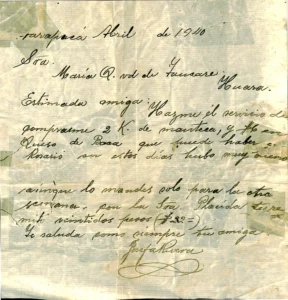 Tarapacá Abril de 1940
Sra.
María R. vd de Taucare.
Huara.
Estimada amiga: Hazme él servicio de
comprarme 2 K. de manteca, y
queso de que puede haber
en estos días hubo muy
aunque lo mandes solo para la otra
semana, con la Sra. Plácida
mití veintidos pesos ($ 22=)
Te saluda como siempre tu amiga